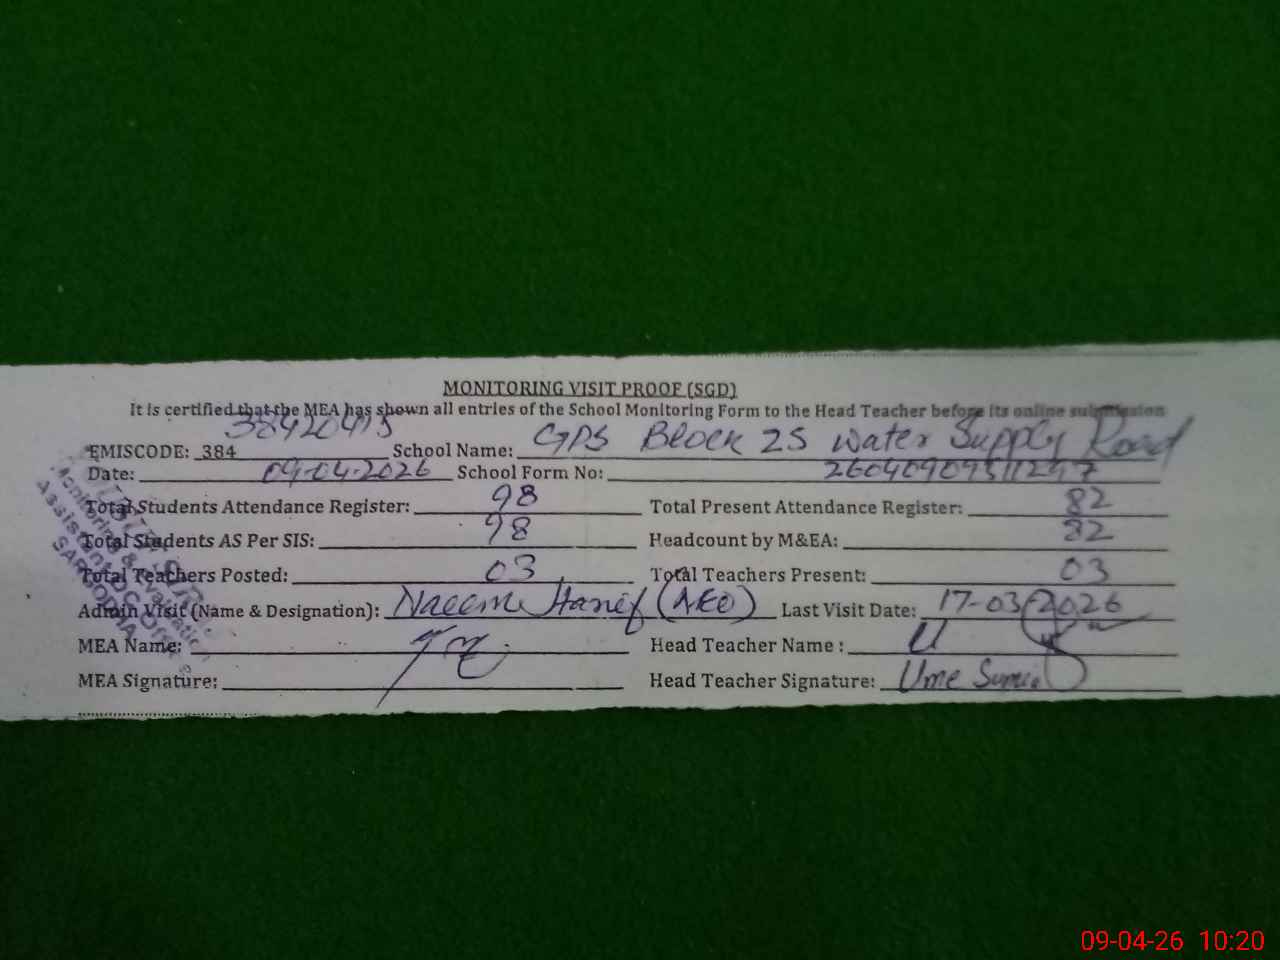 MONITORING VISIT PROOF (SGD)
It is certified that the MEA has shown all entries of the School Monitoring Form to the Head Teacher before its online submission
EMISCODE: 384 38420415 School Name: GPS Block 25 Water Supply Road
Date: 09-04-2026 School Form No:
Total Students Attendance Register: 98 Total Present Attendance Register: 82
Total Students AS Per SIS: 98 Headcount by M&EA: 82
Total Teachers Posted: 03 Total Teachers Present: 03
Admin Visit (Name & Designation): Naeem Hanif (AEO) Last Visit Date: 17-03-2026
MEA Name: Head Teacher Name :
MEA Signature: Head Teacher Signature: Ume
Monitoring & Evaluation
Assistant
SARGODHA
09-04-26 10:20